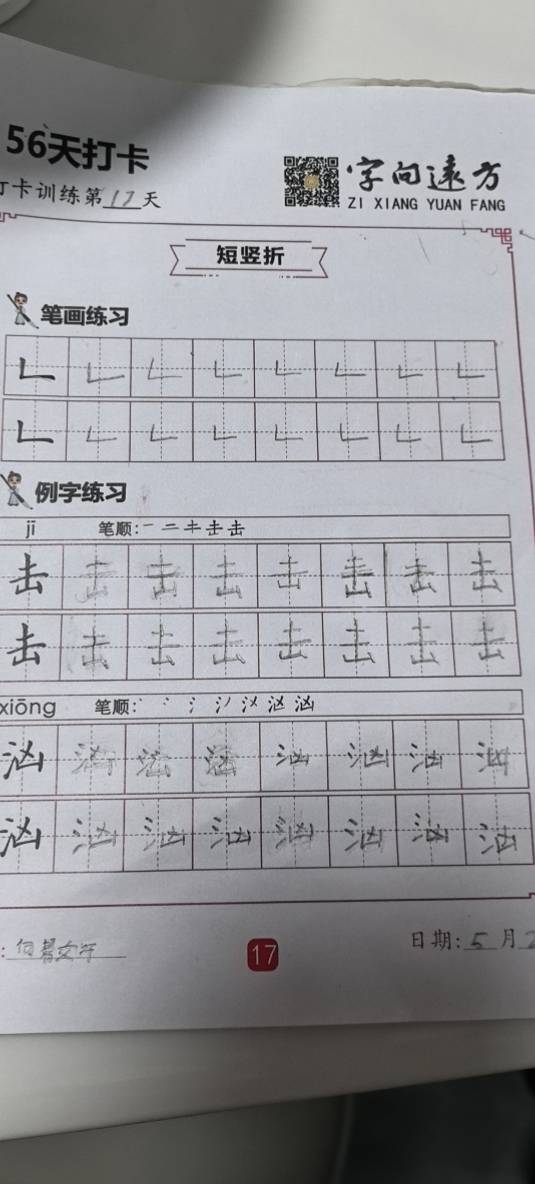 56天打卡
打卡训练第17天
字向遠方
ZI XIANG YUAN FANG
短竖折
笔画练习
例字练习
jī 笔顺:
击 击 击 击 击 击 击 击
击 击 击 击 击 击 击 击
xiōng 笔顺:
汹 汹 汹 汹 汹 汹 汹 汹
汹 汹 汹 汹 汹 汹 汹 汹
17
日期:5月2